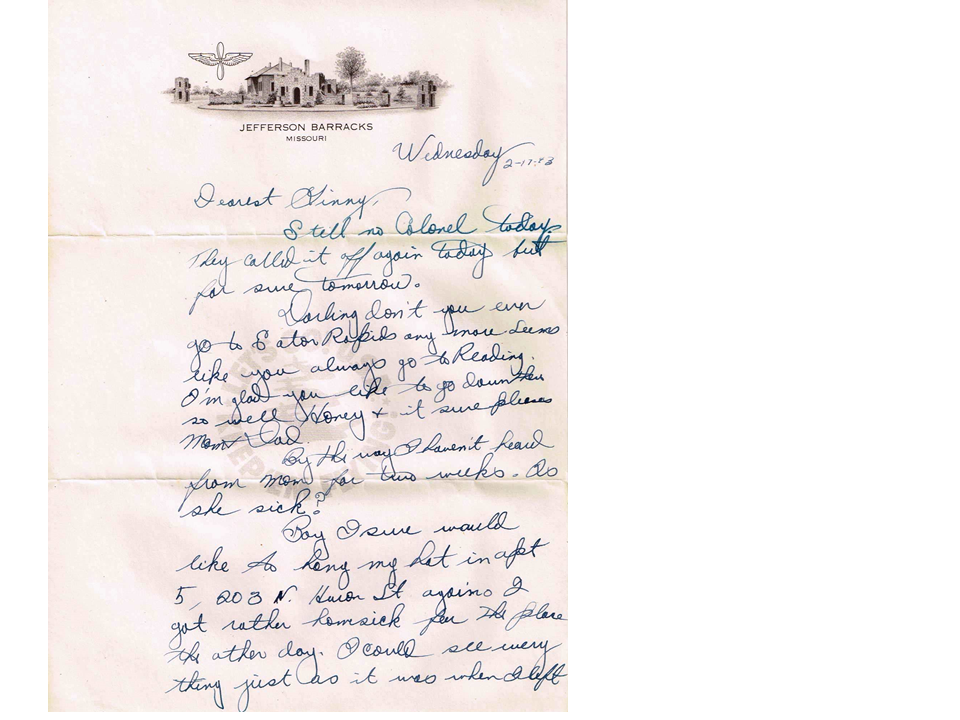 JEFFERSON BARRACKS
MISSOURI
Wednesday 2-17-43
Dearest Ginny,
Still no Colonel today.
They called it off again today but
for sure tomorrow.
Darling don't you ever
go to Eaton Rapids any more Seems
like you always go to Reading.
I'm glad you like to go down there
so well Honey + it sure pleases
Mom + Dad.
By the way I haven't heard
from mom for two weeks. Is
she sick?
Boy I sure would
like to hang my hat in apt
5, 203 N. Huron St again. I
got rather homsick for the place
the other day. I could see every
thing just as it was when I left